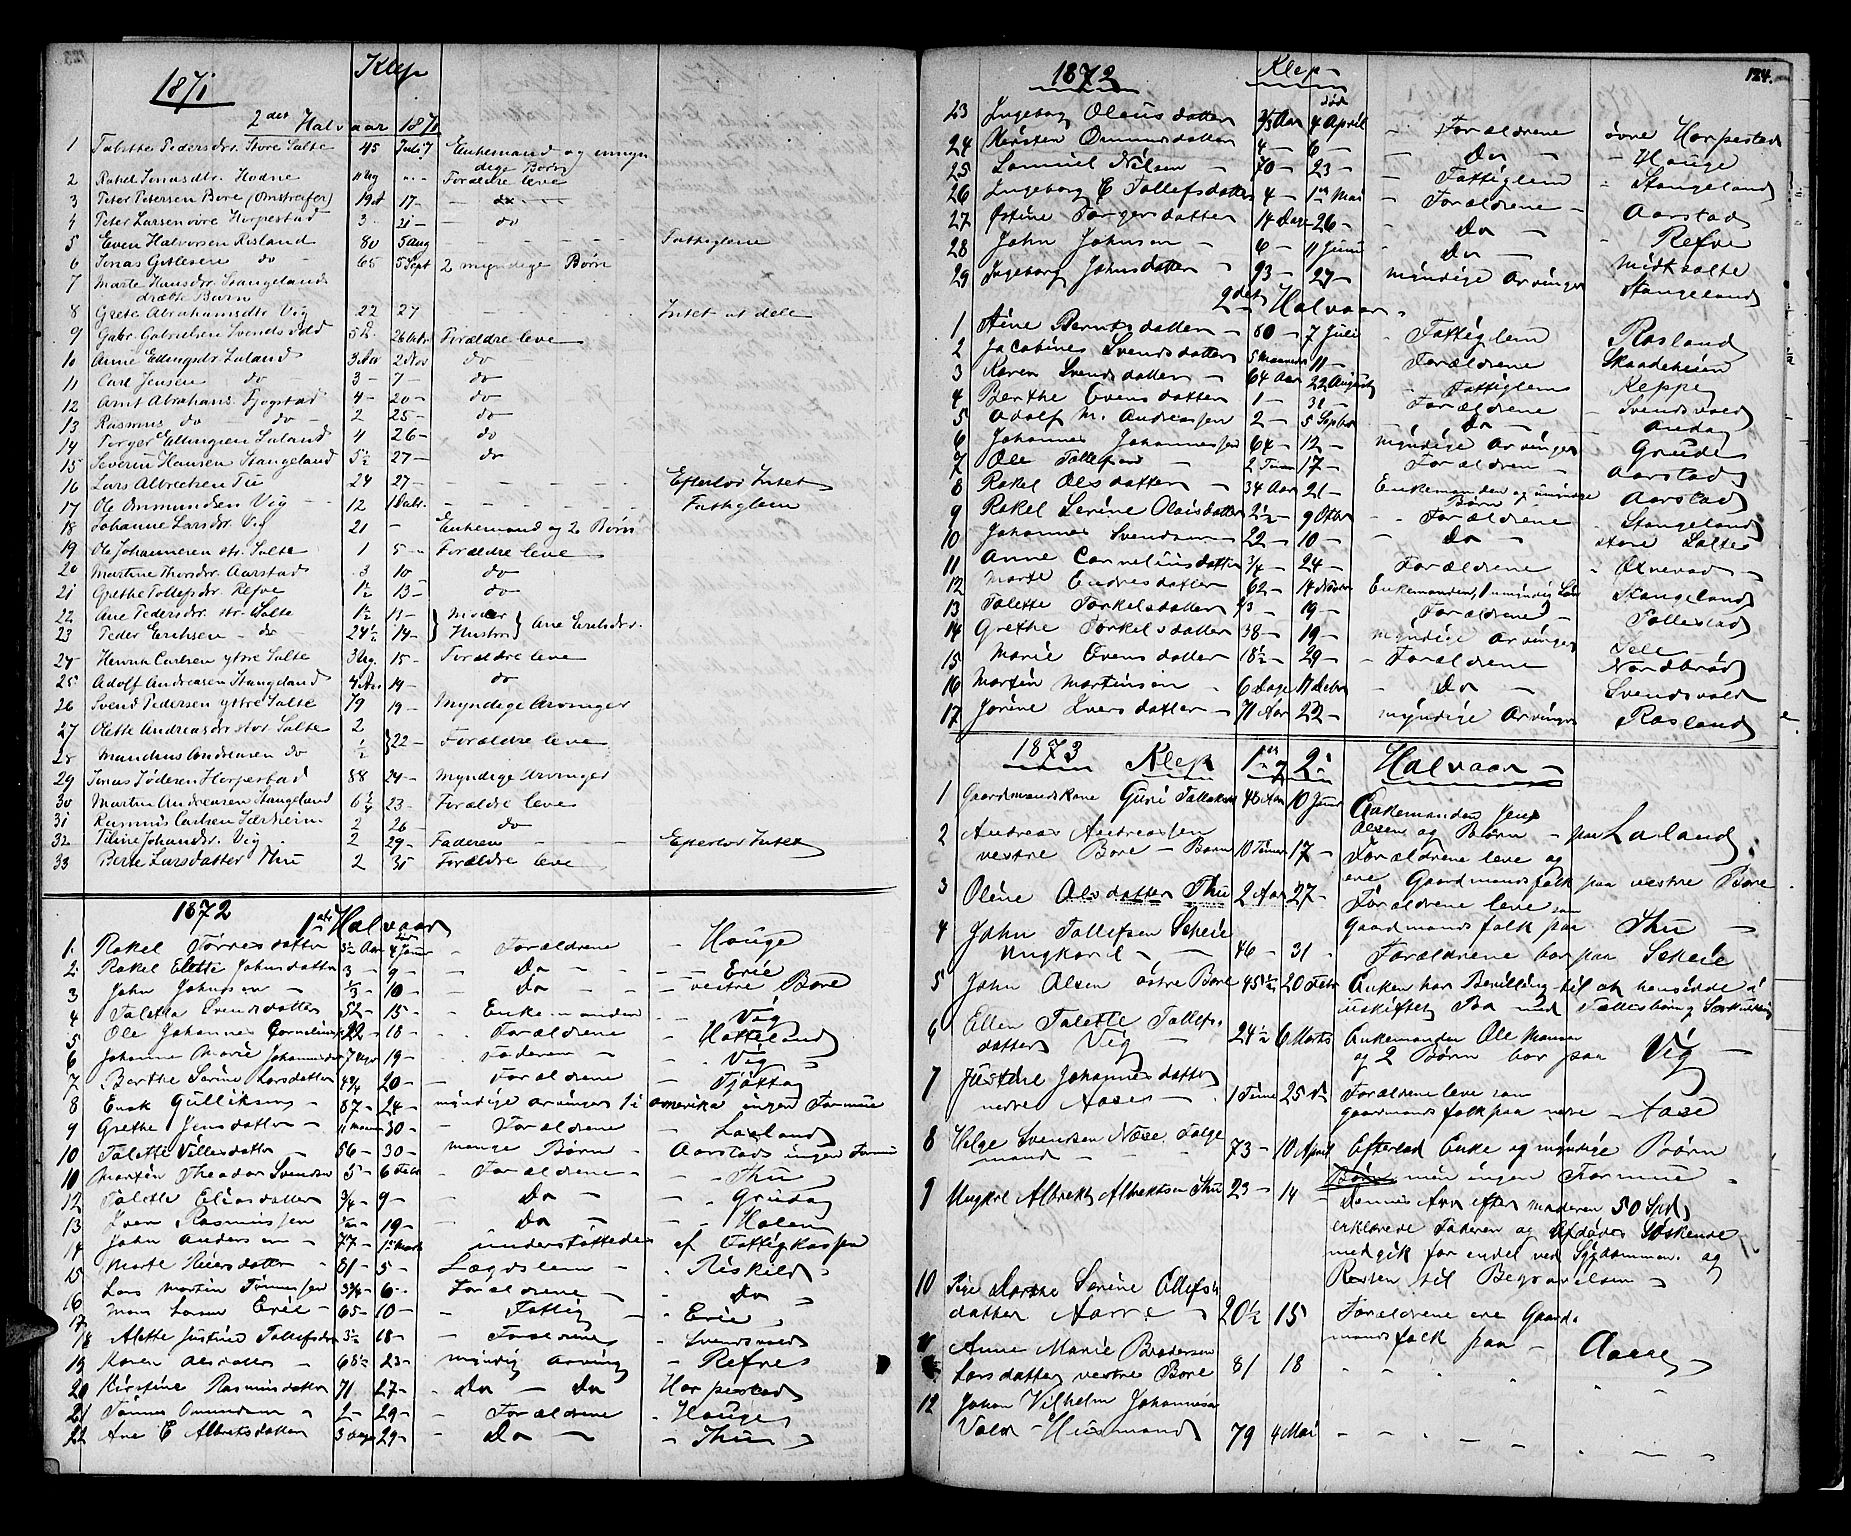 1871 Klep
2det Halvaar 1871
1 Talette Pedersdtr. Store Salte 45 Juli 7 Enkemand og umyn
dige Børn
2 Rakel Jonasdtr. Hodne Forældre leve
3 Peter Petersen Bore (Omstreifer) 17 – do
4 Peter Larsen øvre Horpestad 3 do
5 Even Halvorsen Rosland 80 5 Aug Fattiglem
6 Jonas Gitlesen do 65 5 Sept 2 myndige Børn
7 Marte Hansdtr. Stangeland
Børn
8 Grete Abrahamsdtr Vig 22 27 Intet at dele
9 Gabr. Gabrielsen Svendsvold Forældre leve
10 Anne Ellingsdtr. Laland 2 Nov do
11 Carl Jensen do 3 – 7 – do
12 Arnt Abrahams. Tjøgstad 4 – 20 – do
13 Rasmus do do 2 25 – do
14 Torger Ellingsen Laland 4 26 – do
15 Severin Hansen Stangeland 5½ 27 – do
16 Lars Albrectsen Tu 24 27 – Efterlod Intet
17 Ole Ommundsen Vig 12 1 Fattiglem
18 Johanne Larsdtr. Vig 21 – Enkemand og 2 Børn
19 Ole Johannesen str. Salte 1 5 – Forældre leve
20 Martine Thorsdtr. Aarstad 3 10 do
21 Grethe Tollefsdr. Refve 1½ 13 – do
22 Ane Pedersdr. str. Salte 1½ 11 – Moder
23 Peder Eriksen – do 24½ 14 – Hustro Ane Eriksdtr.
24 Henrik Carlsen ytre Salte 15 – Forældre leve
25 Adolf Andreasen Stangeland 19 – do
26 Svend Pedersen ytre Salte 79 19 – Myndige Arvinger
27 Olette Andreasdtr stor Salte 2
28 Mandius Andreasen do ½ 22 – Forældre leve
29 Jonas Jødesen Horpestad 88 24 – Myndige Arvinger
30 Martin Andreasen Stangeland 23 – Forældre leve
31 Rasmus Carlsen Særheim 2 26 – do
32 Tiline Johansdr. Vig 2 29 – Faderen – Efterlod Intet
33 Berte Larsdatter Thu 2 Forældre leve
1872 1ste Halvaar
1 Rakel Torresdatter Aar 4 Januar Forældrene – Houge
2 Rakel Elette Johnsdatter 3 – 9 – Do – Erie
3 John Johnsen – 10 – Do – vestre Bore
4 Taletta Svendsdatter 52 – 15 – Enkemanden – Vig
5 Ole Johannes Cornelius 18 – Forældrene – Hatteland
6 Johanne Marie Johannesdtr 19 – Faderen – Vig
7 Berthe Serine Larsdatter 20 – Forældrene – Tjøtta
8 Enok Gulliksen 87 – 24 – myndige Arvinger 1 i Amerika ingen Formue
9 Grethe Jensdatter – 30 – Forældrene – Laland
10 Talette Villesdatter 56 – 30 – mange Børn – Aarstad ingen Formue
10 Martin Theodor Svendsen 5 – 6 Feb Forældrene – Thu
12 Talette Eliasdatter ¾ – 9 – Do – Gruda
13 Iver Rasmussen – 19 – Do – Holen
14 John Andersen 77 – 1ste Marts understøttedes af Fattigkassen
15 Marte Heiersdatter 81 – 5 – Lægdslem – Riskild
16 Lars Martin Tønnessen 6 – Forældrene – Do
17 Mons Larsen Erie – 65 – 10 – Fattig – Erie
18 Alette Justine Tollefsdtr 3½ 18 – Forældrene – Svendsvold
19 Karen Olsdatter – 68½ 23 – myndig Arving – Refve
20 Kirstine Rasmusdatter 71 27 – Do – Do Horpestad
21 Tønnes Omundsen – 2 – 29 – Forældrene – Houge
22 Ane E Albretsdatter 3 Dage 29 – Do – Thu
124.
1872 Klep
død
23 Ingeborg Olausdatter Aar 4 April Forældrene øvre Horpestad
24 Kirsten Ommundsdatter 4 – 6 – Do – Houge
25 Samuel Nilsen 70 – 23 – Fattiglem – Stangeland
26 Ingeborg E Tollefsdatter 4 – 1ste Mai – Forældrene – Aarstad
27 Østine Torgersdatter 14 Dage 26 – Do – Refve
28 John Johnsen 6 – 11 Juni Do – Midtsalte
29 Ingeborg Johnsdatter 93 – 27 – myndige Arvinger Stangeland
2det Halvaar
1 Aine Berntsdatter – 80 – 7 Juli Fattiglem Rosland
2 Jacobine Svendsdatter 5 Maaneder 11 – Forældrene Skaadeheien
3 Karen Svendsdatter 64 Aar 22 August Fattiglem Keppe
4 Berthe Evensdatter 1 – 31 – Forældrene Svendsvold
5 Adolf M. Andreassen 2 – 5 Septbr – Do – Anda
6 Johannes Johannessen 64 – 12 – myndige Arvinger Grude
7 Ole Tollefsen 2 Timer 17 – Forældrene Aarstad
8 Rakel Olsdatter 34 Aar 21 – Enkemanden og umyndige
Børn Aarstad
9 Rakel Serine Olaisdatter 2½ – 9 Octbr Forældrene – Stangeland
10 Johannes Svendsen 22 – 10 – Do – store Salte
11 Anne Corneliusdatter ¾ – 24 – Forældrene – Orrevad
12 Marte Endresdatter 62 – 14 Novbr Enkemanden, 1 umyndig Søn Stangeland
13 Talette Torkelsdatter 19 – Forældrene – Tollestad
14 Grethe Torkelsdatter 38 – 19 – myndige Arvinger Sele
15 Marie Evensdatter 18½ – 29 – Forældrene Nordbrød
16 Martin Martinsen 6 Dage 17 Decbr – Do – Svendsvold
17 Jorine Iversdatter – 71 Aar 22 – myndige Arvinger Rosland
1873 Klep 1ste og 2det Halvaar
1 Gaardmandskone Guri Tollaksdtr 48 Aar 10 Januar Enkemanden Jens
Olsen og Børn – paa Laland
2 Andreas Andreassen
vestre Bore – Barn 10 Timer 17 – Forældrene leve og
ere Gaardmandsfolk paa vestre Bore
3 Oline Olsdatter Thu 2 Aar 27 – Forældrene leve som
Gaardmandsfolk paa Thu
4 John Tollefsen Scheie
Ungkarl – 46 – 31 Forældrene bor paa Scheie
5 John Olsen østre Bore 45½ 20 Febr Enken har Bevilling til at hensidde i
uskiftet Bo med Fællesbørn og Særkuldbørn
6 Ellen Talette Tollefs-
datter Vig 24½ 6 Marts Enkemanden Ole Hansen
og 2 Børn bor paa Vig
7 Justine Johannesdatter
nedre Aase – 1 Time 25 do Forældrene leve som
Gaardmandsfolk paa nedre Aase
8 Helge Svensen Næse Følge-
mand 73 – 10 April Efterlod Enke og myndige Børn
men ingen Formue
9 Ungkrl Albrekt Albrektsen Thu 23 – 14 Dennes Arv efter moderen 50 Spd
erklærede Faderen og Afdødes Søskende
medgik for endel ved Sygdommen og
Resten til Begravelsen
10 Pige Dorthe Serine Ollefs-
datter Aarre 20½ 15 Forældrene ere Gaard-
mandsfolk paa Aarre
11 Anne Marie Brodersen
Larsdatter vestre Bore 81 18
12 Johan Vilhelm Johannesen
Voll – Husmand 79 4 Mai